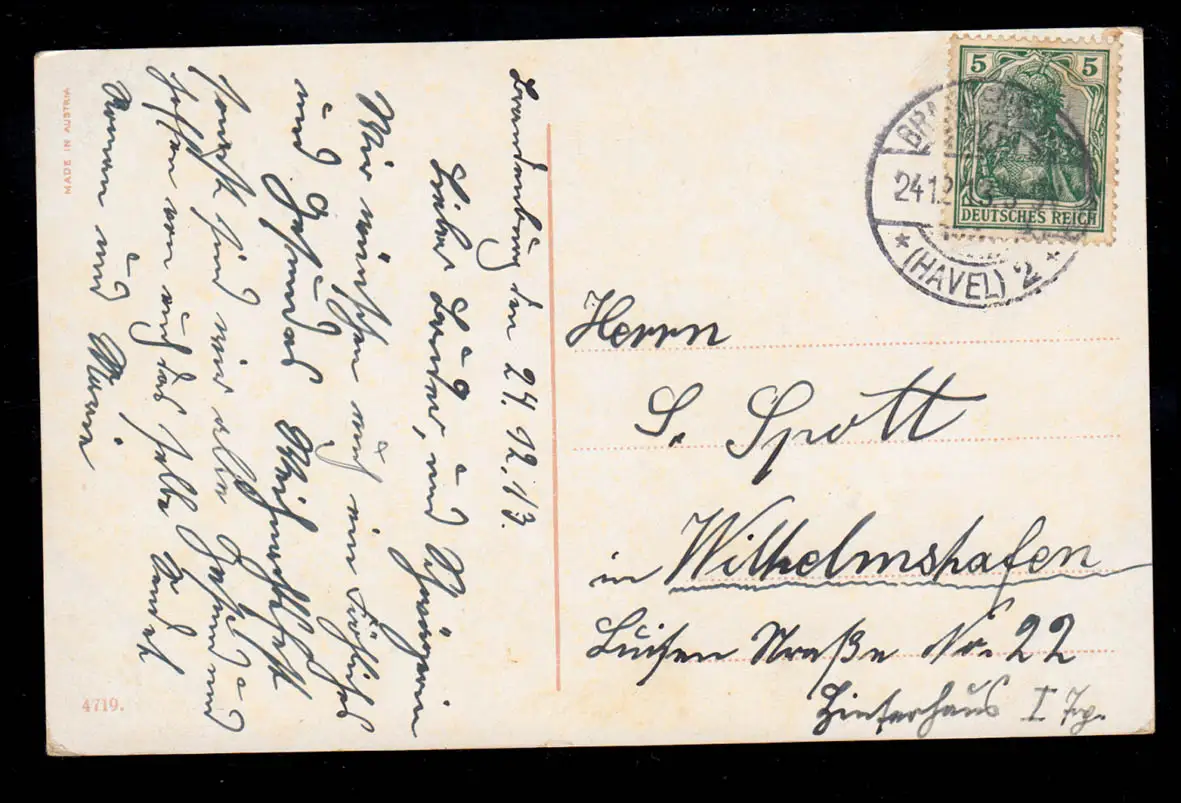 MADE IN AUSTRIA
4719.
Brandenburg den 24.12.13.
Lieber Bruder, und Schwägerin
Wir wünschen euch ein Fröhliches
und Gesundes Weihnachtsfest
sonst sind wir alle Gesund und
hoffen von euch das selbe
und Minna
5 5
DEUTSCHES REICH
24.12
(HAVEL) 2
Herrn
S. Spott
in Wilhelmshafen
Luisen Straße No. 22
Hinterhaus I